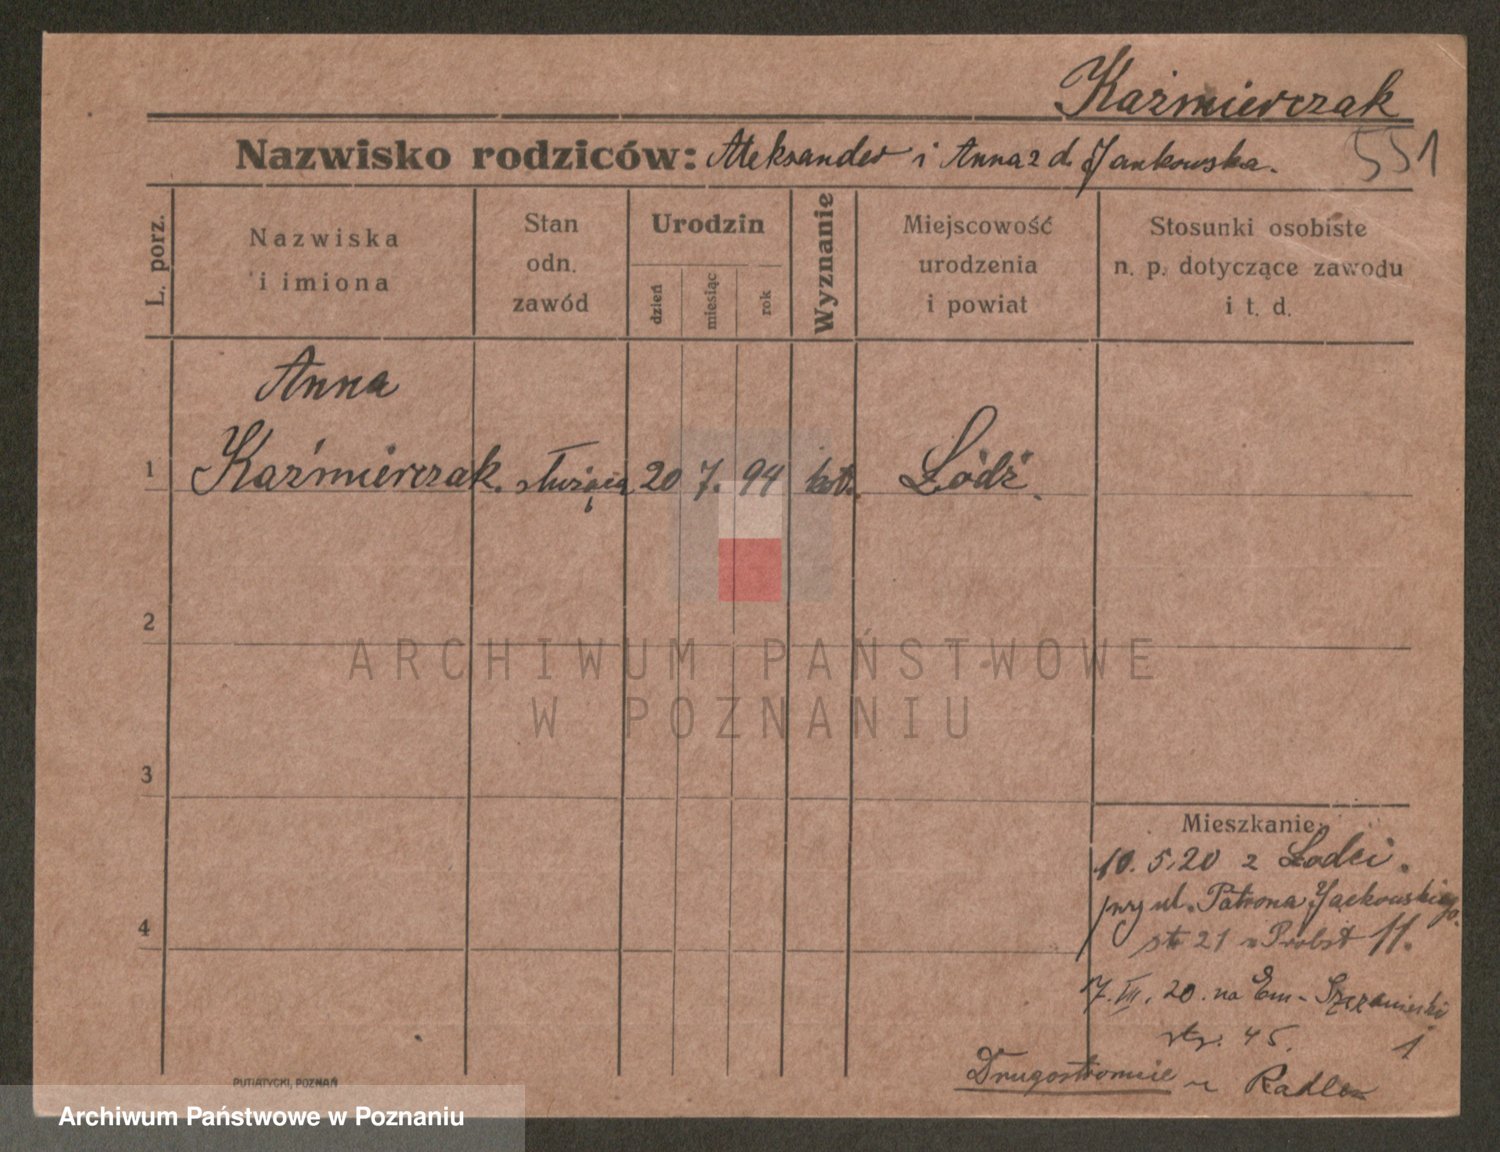 Kaźmierczak
Nazwisko rodziców: Aleksander i Anna z d. Jankowska.
551
L. porz.
Nazwiska
i imiona
Stan
odn.
zawód
Urodzin
dzień
miesiąc
rok
Wyznanie
Miejscowość
urodzenia
i powiat
Stosunki osobiste
n. p. dotyczące zawodu
i t. d.
Anna
1 Kaźmierczak. służąca 20 7. 94 kat. Łódź.
2
ARCHIWUM PAŃSTWOWE
W POZNANIU
3
Mieszkanie:
10. 5. 20 z Łodzi.
przy ul. Patrona Jackowskiego
21 Probst 11.
4
20. na Em-
45.
1
Drugostronnie
PUTIATYCKI, POZNAŃ
Archiwum Państwowe w Poznaniu